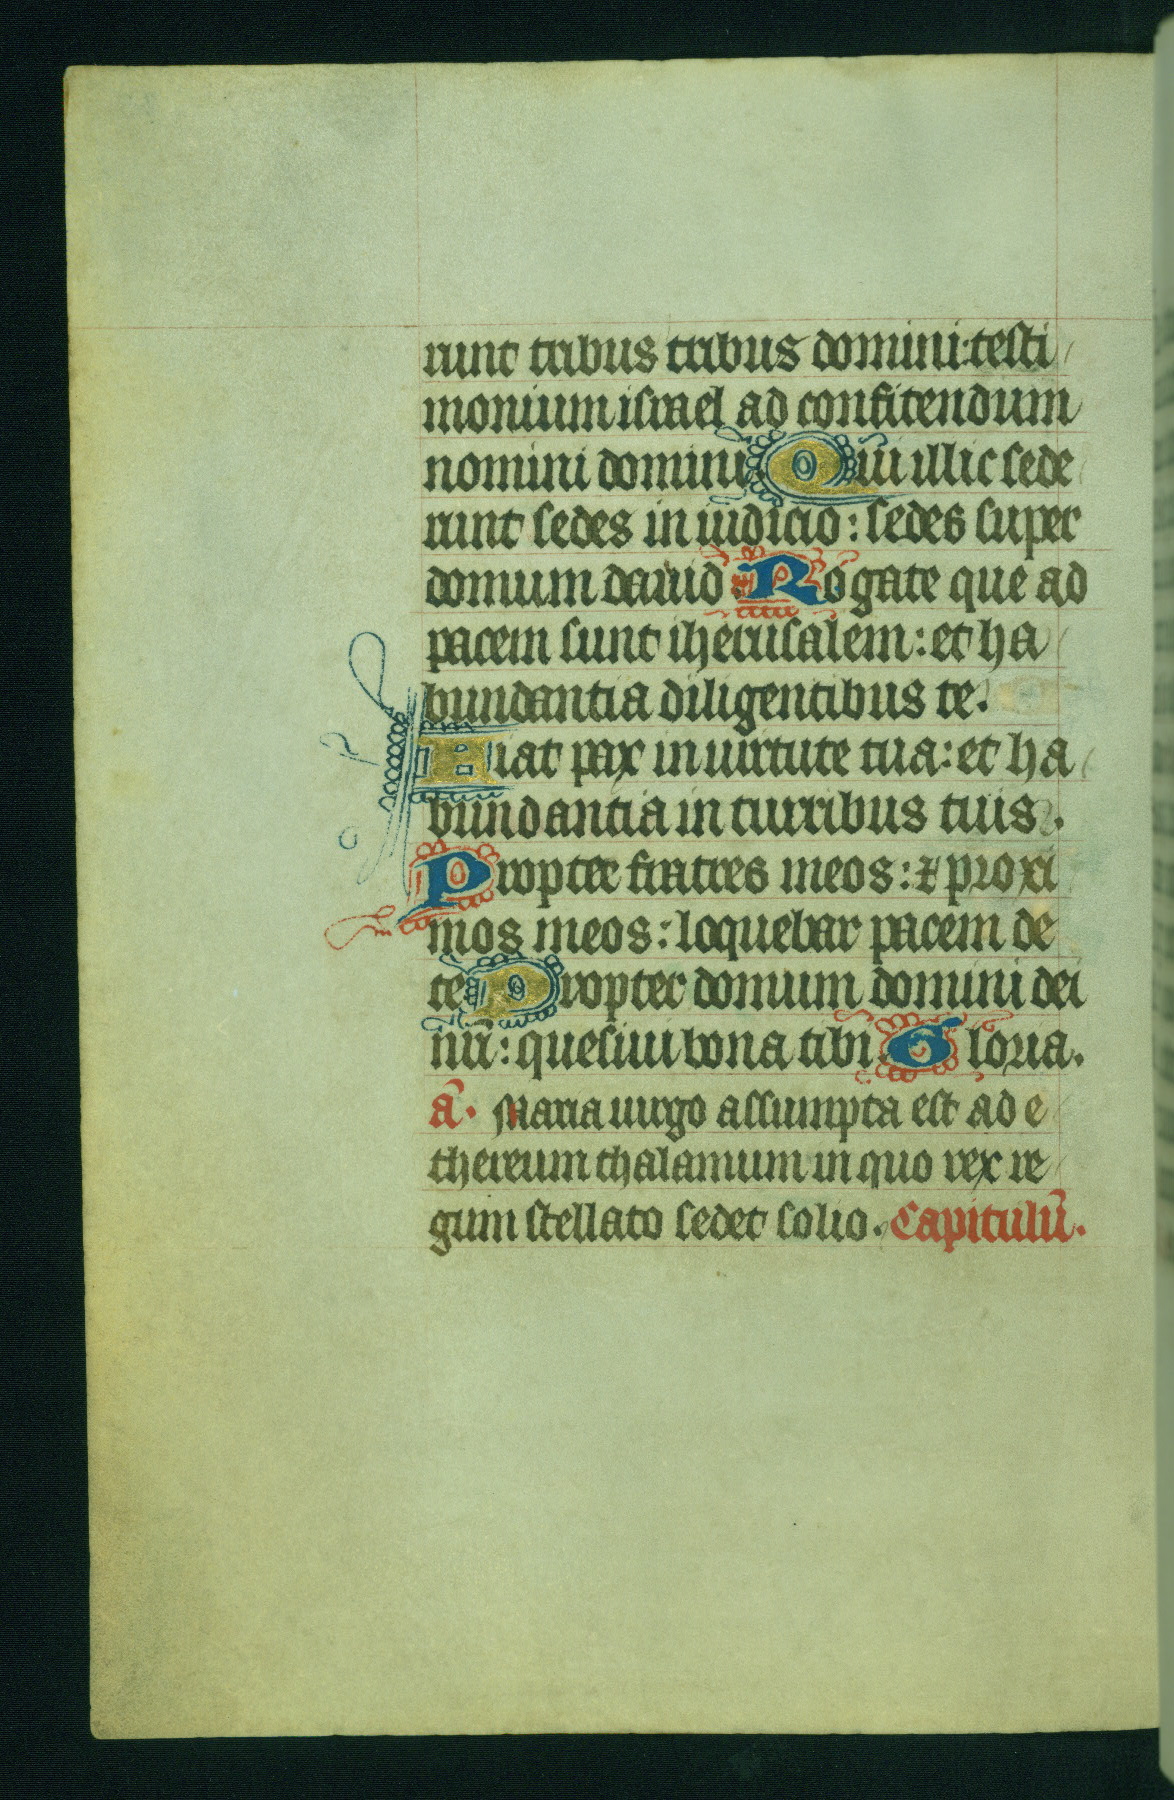 runt tribus tribus domini: testi
monium israel ad confitendum
nomini domini. Qui illic sede
runt sedes in iudicio: sedes super
domum dauid. Rogate que ad
pacem sunt iherusalem: et ha
bundantia diligentibus te.
Fiat pax in uirtute tua: et ha
bundantia in turribus tuis.
Propter fratres meos: ⁊ proxi
mos meos: loquebar pacem de
te. Propter domum domini dei
nr̄i: quesiui bona tibi. Gloria.
a̅. Maria uirgo assumpta est ad e
thereum thalamum in quo rex re
gum stellato sedet solio. Capitulū.